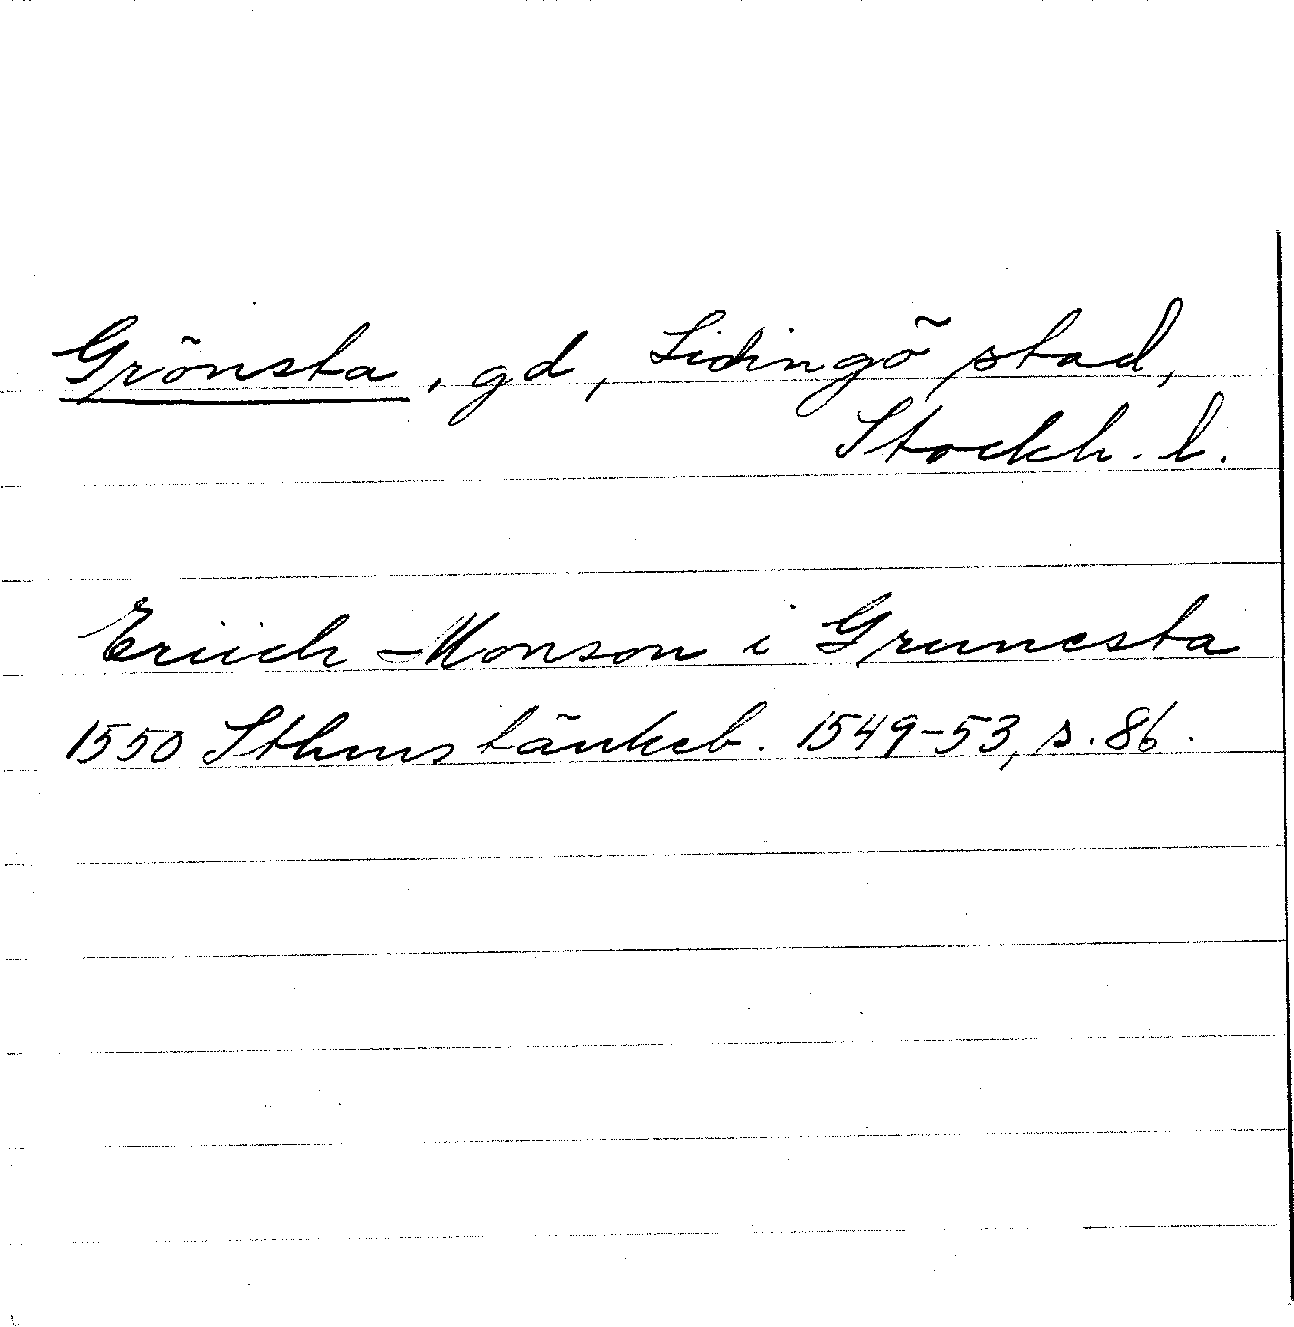 Grönsta, gd, Lidingö stad,
Stockh. l.
Eriich Monson i Grunesta
1550 Sthms tänkeb. 1549-53, s. 86.